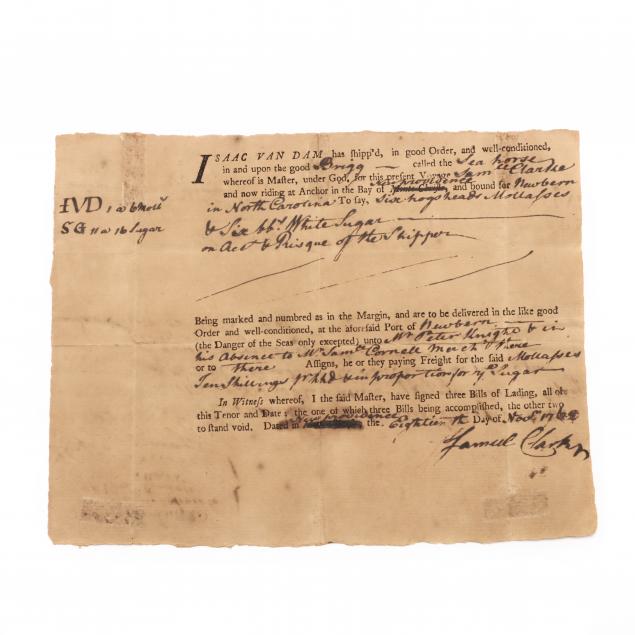 ISAAC VAN DAM has shipp'd, in good Order, and well-conditioned,
in and upon the good Brigg called the Sea horse
whereof is Master, under God, for this present Voyage Sam.l Clarke
and now riding at Anchor in the Bay of New providence and bound for Newbern
in North Carolina To say, Six hogsheads Mollasses
& Six bb.s White Sugar
on Acc.t & Risque of the Shipper
IVD 1 a 6 Moll.s
SG 11 a 16 Sugar
Being marked and numbred as in the Margin, and are to be delivered in the like good
Order and well-conditioned, at the aforesaid Port of Newbern
(the Danger of the Seas only excepted) unto Mr. Peter Knight & in
his Absence to Mr. Sam.l Cornell Merch.t there
or to there Assigns, he or they paying Freight for the said Mollasses
Ten Shillings pr. hhd & in proportion for ye Sugar
In Witness whereof, I the said Master, have signed three Bills of Lading, all of
this Tenor and Date; the one of which three Bills being accomplished, the other two
to stand void. Dated in New providence the Eighteenth Day of Nov.r
Samuel Clarke